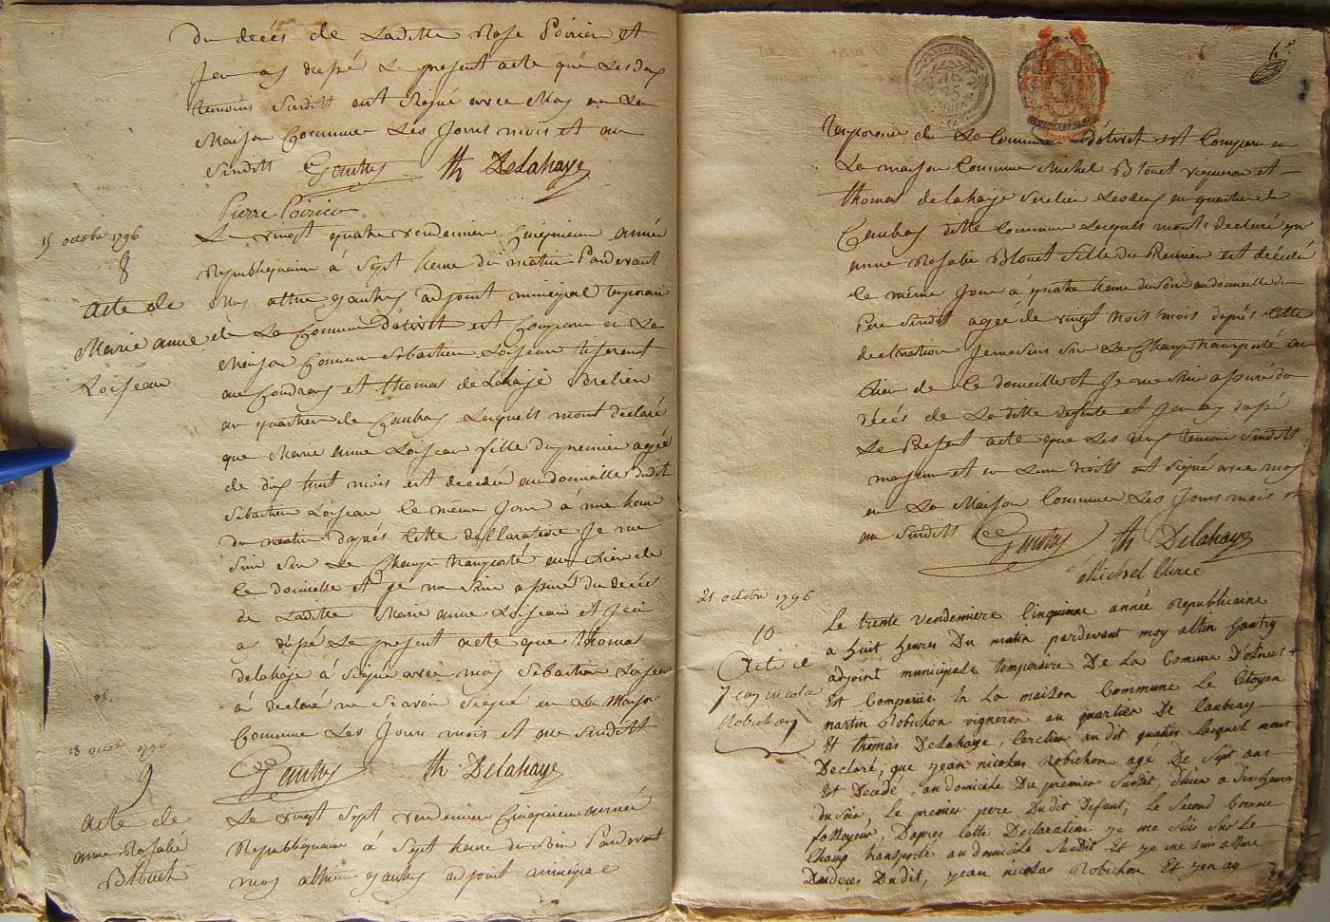 du decés de Laditte Rose Poirier et
Jen ay dressé Le present acte que Les deux
temoins Susdits ont Signé avec Moy en La
Maison Commune Les Jours mois et an
Susdits Gautry th Delahaye
Pierre Poirier
15 octobre 1796
8
acte de
Marie anne
Loiseau
Le vingt quatre vendemiere Cinquieme année
Republiquaine à Sept heure du matin Pardevant
Moy altin gautry adjoint municipal temporaire
de La Commune est Comparu en La
Maison Commune Sebastien Loiseau tisserant
au et thomas de Lahaje
au quartier de Caubray Lesquels mont declaré
que Marie anne Loiseau fille du premier agée
de dix huit mois est decedée au domicille dudit
Sebastien Loiseau le même Jour à une heure
du matin daprés Cette declaration Je me
Suis Sur Le Champ transporté au Lieu de
Ce domicille et je me Suis assuré du decés
de Laditte Marie anne Loiseau et Jen
ay dressé Le present acte que thomas
delahaje à Signé avec moy Sebastien Loiseau
à declaré ne Scavoir Signé en La Maison
Commune Les Jours mois et an Susditt
Gautry th Delahaye
18 1796
9
acte de
anne Rosalie
Blouet
Le vingt Sept vendemiere Cinquieme année
Republiquaine à Sept heure du Soir Pardevant
moy altin gautry adjoint municipal
6
temporaire de La Commune est Comparu en
La maison Commune Michel Blouet vigneron et
thomas delahaje Les deux au quartier de
Caubray ditte Commune Lesquels mont declaré que
anne Rosalie Blouet fille du Premier est décédé
le même Jour à quatre heure du Soir au domicille du
Pere Susdit agée de vingt trois mois daprés Cette
declaration Je me suis Sur Le Champ transporté au
Lieu de Ce domicille et Je me Suis assuré du
décés de Laditte defunte et Jen ay dressé
Le Present acte que Les deux temoins Susditt
majeurs et en Leurs droits ont Signé avec moy
en La Maison Commune Les Jours mois et
an Susditt Gautry th Delahaye
Michel
21 octobre 1796
10
Acte de
Jean nicolas
Robichon
Le trente vendemiere Cinquieme année Republicaine
a huit heures Du matin pardevant moy altin Gautry
adjoint municipale temporaire De La Comune
Est Comparüe En La maison Commune Le Citoyen
martin Robichon vigneron au quartier De Caubray
Et thomas Delahaye, au dit quartier Lesquels mont
Declaré, que jean nicolas Robichon agé De Sept ans
Est Decédé, au domicile Du premier Susdit, a Dix heures
du Soir, Le premier pere Dudit Defunt, Le Second
fossoyeur, D'apres Cette Declaration je me Suis Sur Le
Champ transporté au domicile Susdit Et je me suis assuré
Du deces Dudit, jean nicolas Robichon Et jen ay